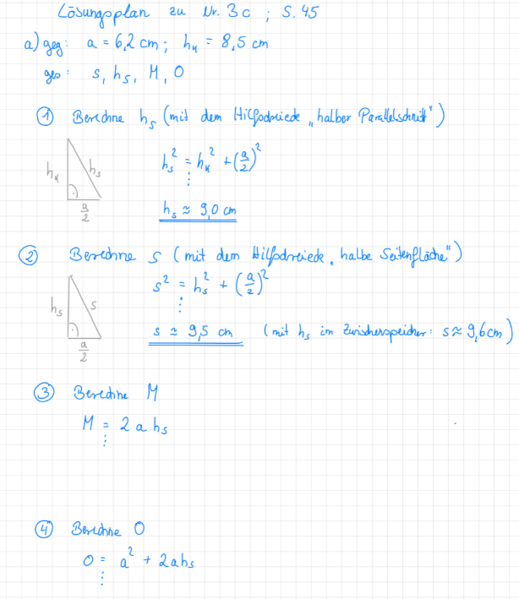 Lösungsplan zu Nr. 3c ; S. 45
a) geg: a = 6,2 cm ; hₖ = 8,5 cm
ges: s, hₛ, M, O
① Berechne hₛ (mit dem Hilfsdreieck „halber Parallelschnitt")
hₖ hₛ a/2
hₛ² = hₖ² + (a/2)²
⋮
hₛ ≈ 9,0 cm
② Berechne s (mit dem Hilfsdreieck „halbe Seitenfläche")
hₛ s a/2
s² = hₛ² + (a/2)²
⋮
s ≈ 9,5 cm (mit hₛ im Zwischenspeicher: s ≈ 9,6 cm)
③ Berechne M
M = 2 a hₛ
⋮
④ Berechne O
O = a² + 2ahₛ
⋮